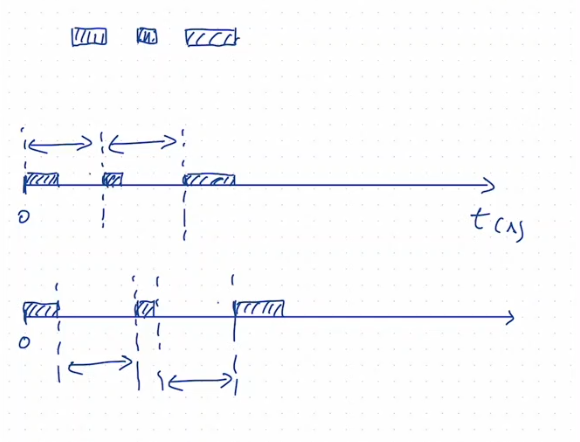 0
t(s)
0